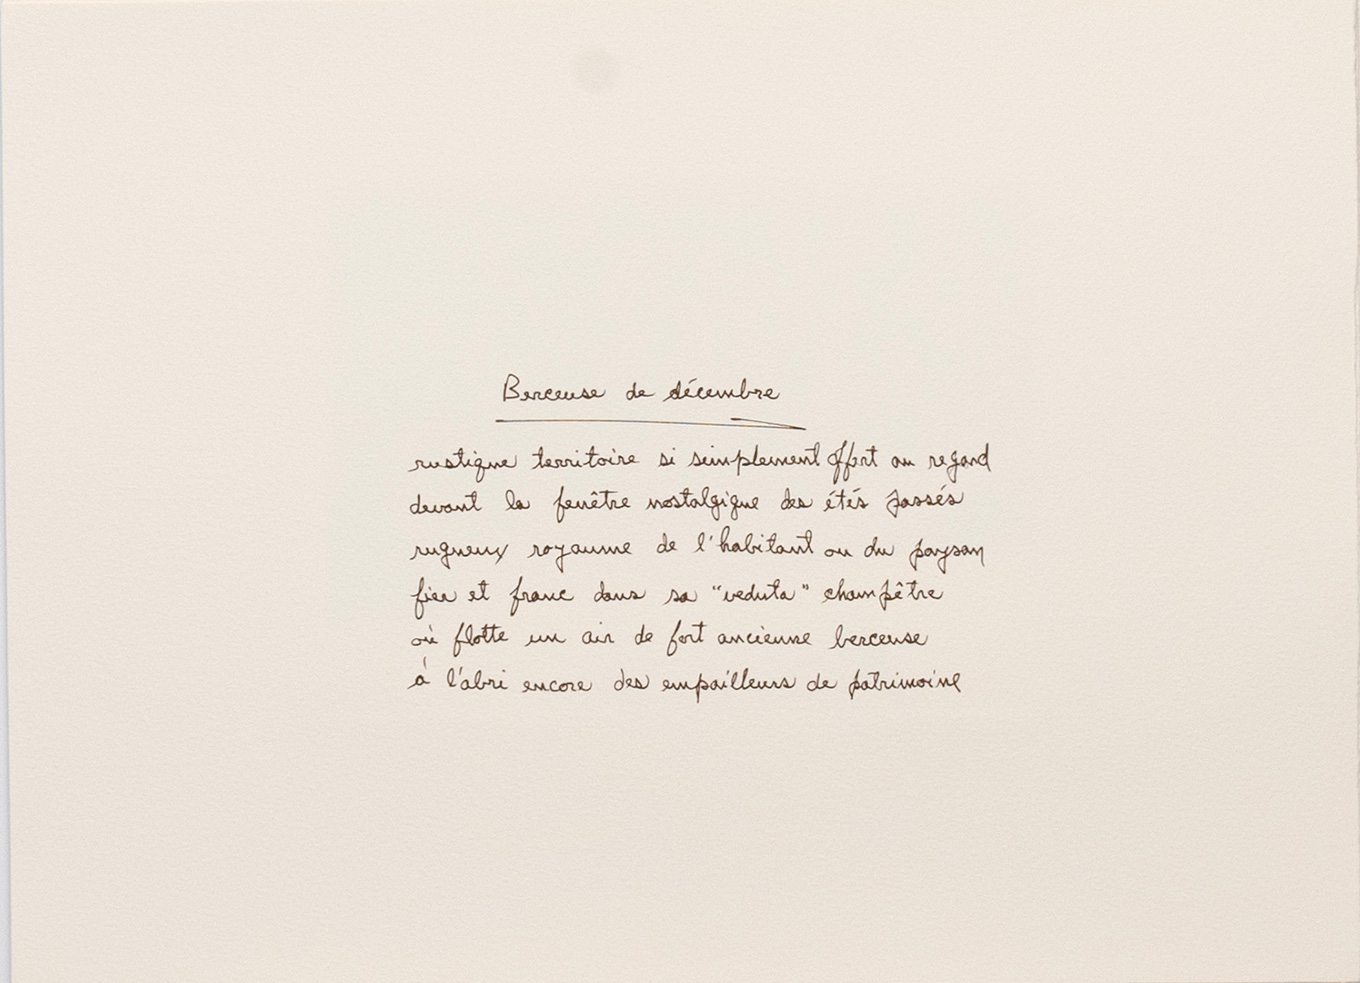 Berceuse de décembre
rustique territoire si simplement offert au regard
devant la fenêtre nostalgique des étés passés
rugueux royaume de l'habitant ou du paysan
fier et franc dans sa "veduta" champêtre
où flotte un air de fort ancienne berceuse
à l'abri encore des empailleurs de patrimoine